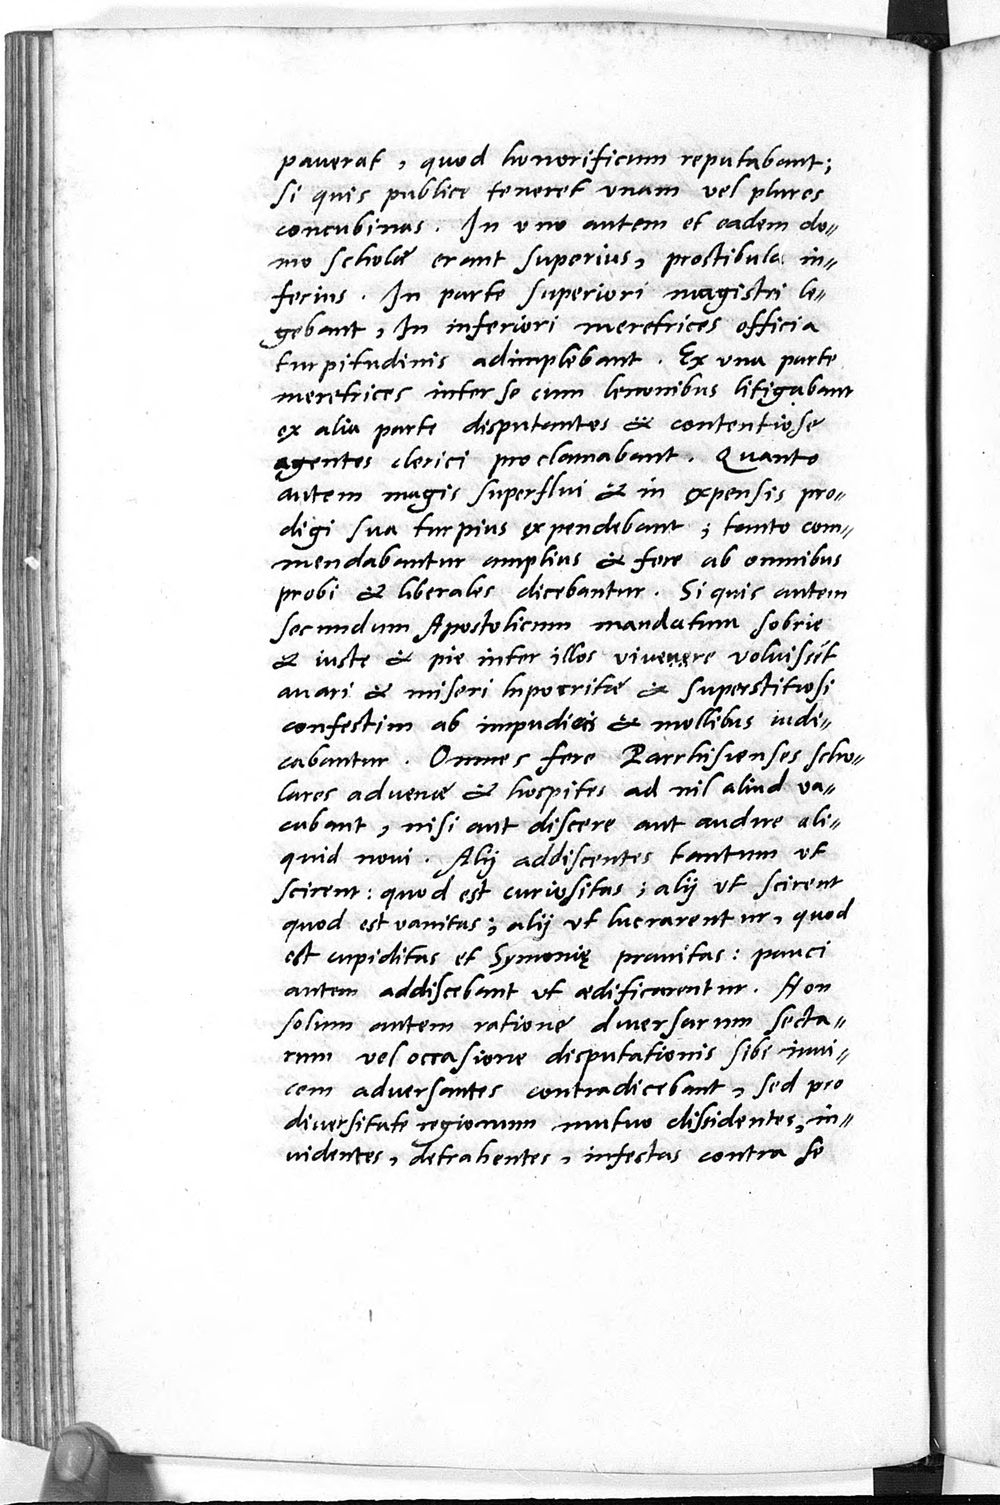 pauerat, quod honorificum reputabant;
si quis publice teneret vnam vel plures
concubinas. In vno autem et eadem do=
mo scholæ erant superius, prostibula in=
ferius. In parte superiori magistri le=
gebant, In inferiori meretrices officia
turpitudinis adimplebant. Ex vna parte
meretrices inter se cum lenonibus litigabant
ex alia parte disputantes & contentiose
agentes clerici proclamabant. Quanto
autem magis superflui & in expensis pro=
digi sua turpius expendebant; tanto com=
mendabantur amplius & fere ab omnibus
probi & liberales dicebantur. Si quis autem
secundum Apostolicum mandatum sobrie
& iuste & pie inter illos viuere voluisset
auari & miseri hipocritæ & superstitiosi
confestim ab impudicis & mollibus iudi=
cabantur. Omnes fere Parrhisienses scho=
lares aduenæ & hospites ad nil aliud va=
cabant, nisi aut discere aut audire ali=
quid noui. Alij addiscentes tantum vt
scirent: quod est curiositas; alij vt scirent
quod est vanitas; alij vt lucrarentur, quod
est cupiditas et Symonię prauitas: pauci
autem addiscebant vt ædificarentur. Non
solum autem ratione diuersarum secta=
rum vel occasione disputationis sibi inui=
cem aduersantes contradicebant, sed pro
diuersitate regionum mutuo dissidentes, in=
uidentes, detrahentes, infestas contra se